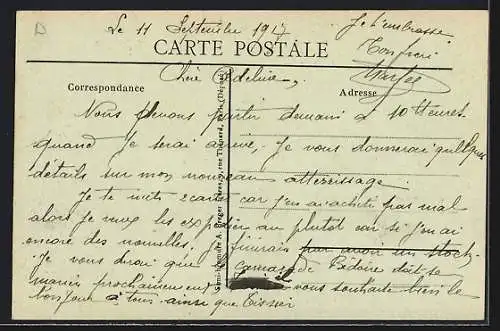 Le 11 Septembre 1917
Je t'embrasse
Ton frère
CARTE POSTALE
Chère Adeline,
Correspondance
Adresse
Nous devons partir demain à 10 Heures
quand je serai arrivé, je vous donnerai quelques
détails sur mon nouveau atterrissage.
Je te mets 2 cartes car j'en ai acheté pas mal
alors je veux les expédier au plutot car si j'en ai
encore des nouvelles. Je finirais par avoir un stock.
Je vous dirai que camarade de doit se
marier prochainement vous souhaite bien le
bonjour à tous ainsi que